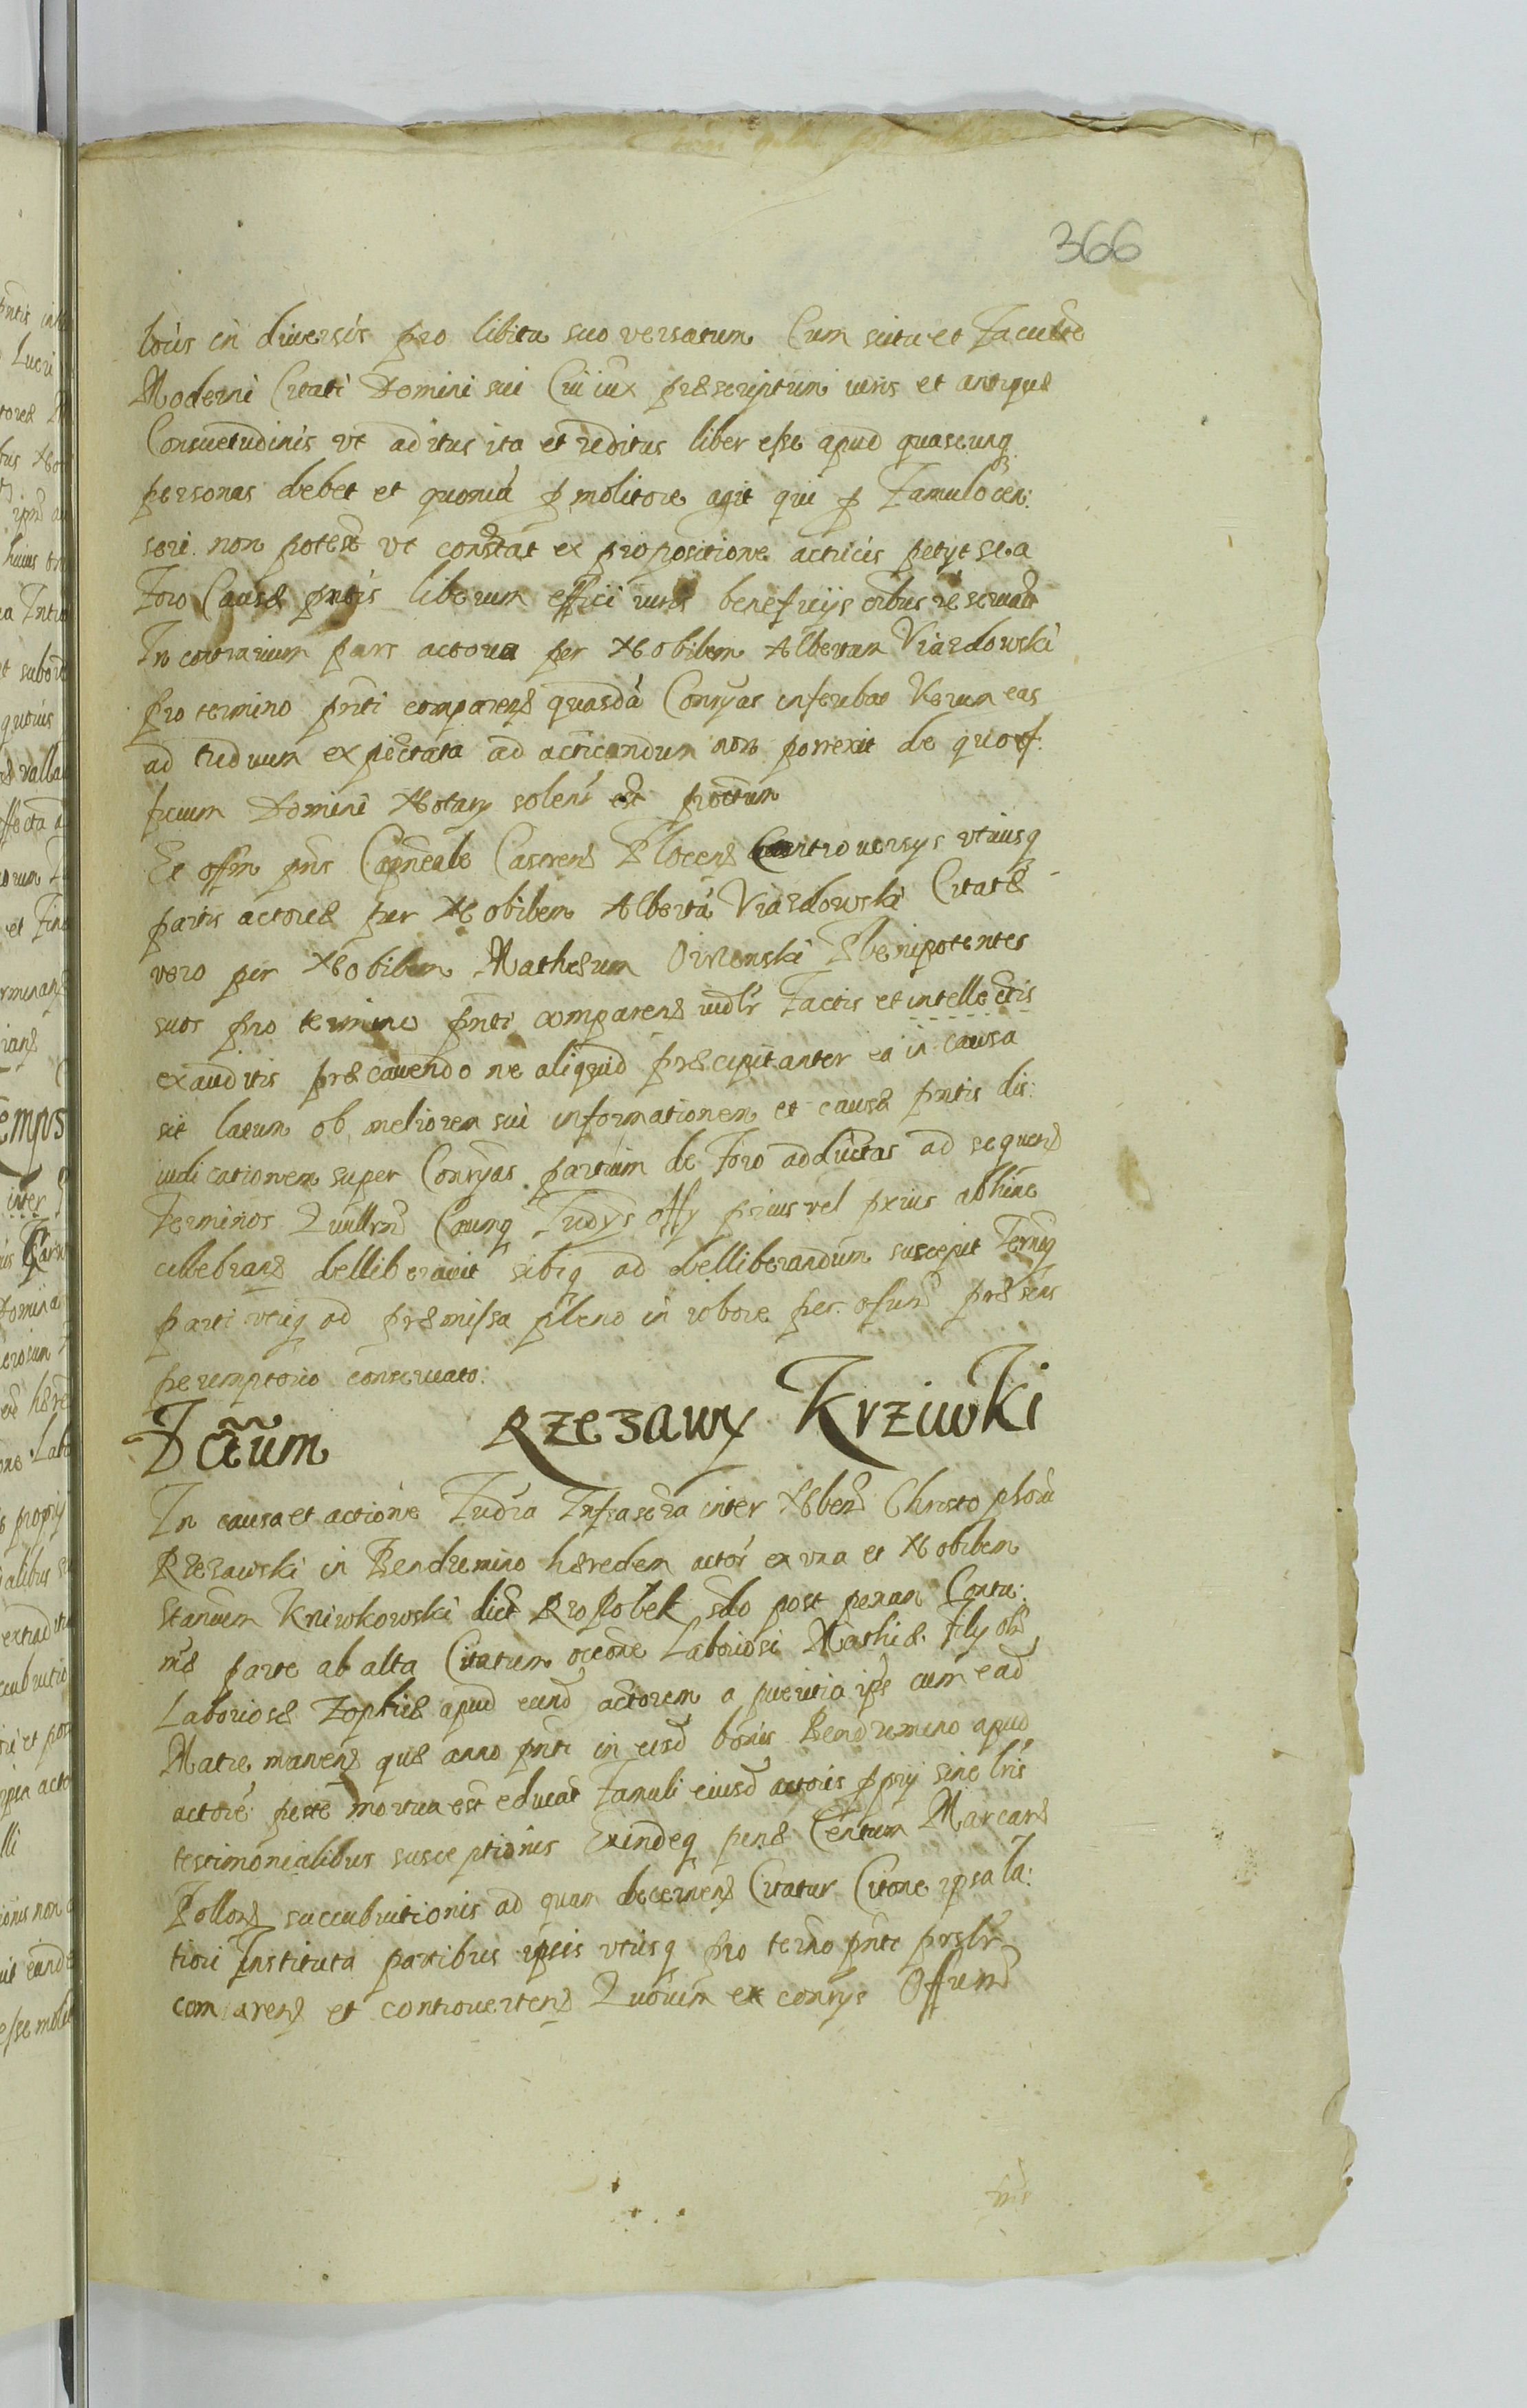 366
locis in diversis pro libitu suo versatum Cum scitu et Facultte
Moderni Citati Domini sui Cui iux præscriptum iuris et antiquæ
Consuetudinis vt aditus ita et reditus liber esse apud quascunq
personas debet et quoniã p molitore agit qui p Famulo cen:
seri non potest vt constat ex propositione actricis petyt se a
Foro Causæ pntis liberum effici iuris beneficijs oibus reservatis
In contrarium pars actorea per Nobilem Albertum Viazdowski
pro termino pnti comparens quasdã Conrÿas inferebat Verum eas
ad triduum expectata ad acticandum non porrexit de quo of:
ficium Domini Notarÿ solenr est protestum
Et offm pns Capneale Castren Plocen Controversys vtriusq
partis actoreæ per Nobilem Albertũ Viazdowski Citatæ
vero per Nobilem Mathæum Plenipotentes
suos pro termino pnti comparen iudlr Factis et intellectis
exauditis præcavendo ne aliquid præcipitanter ea in causa
sit latum ob meliorem sui informationem et causæ pntis dis:
iudicationem super Conrÿas partium de Foro adductas ad sequen
Terminos Querellrum Caunq Iudÿs offÿ prius vel pxius abhinc
cellebrans delliberavit sibiq ad delliberandum suscepit Termq
parti vtriq ad præmissa pleno in robore per præsens
peremptorio conservato:
Dctum Rzezawy Krziwki
In causa et actione Iudra Infrascra inter Nblem Christophorũ
Rzezawski in Bendzmino hæredem actor ex vna et Nobilem
Stanum Kriwkowski dict Propobek sdo post penam Contu:
mæ parte ab alta Citatum occone Laboriosi Mathiæ filÿ olim
Laboriosæ Zophiæ apud eund actorem a pueritia ipse cum ead
Matre manens quæ anno pnti in eisd bonis Bendzmino apud
actore peste mortua est educat Famuli eiusd actoris pprÿ sine lris
testimonialibus susceptionis Exindeq penæ Centum Marcarum
Pollon succubuitionis ad quam decernen Citatur Citone ipsa la:
tiori Instituta partibus ipsis vtrisq pro termo pnte prslr
comparen et controverten Quorum ex conrÿs Offium